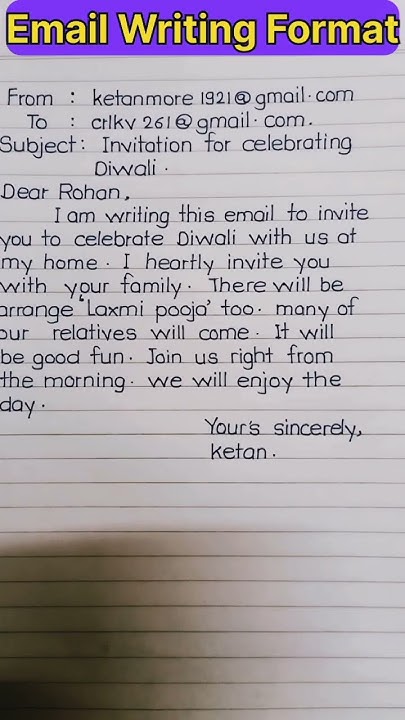 Email Writing Format
From : ketanmore 1921@gmail.com
To : crlkv 261@gmail.com.
Subject: Invitation for celebrating
Diwali.
Dear Rohan,
I am writing this email to invite
you to celebrate Diwali with us at
my home. I heartly invite you
with your family. There will be
arrange 'Laxmi pooja' too. many of
our relatives will come. It will
be good fun. Join us right from
the morning. we will enjoy the
day.
Your's sincerely,
ketan.